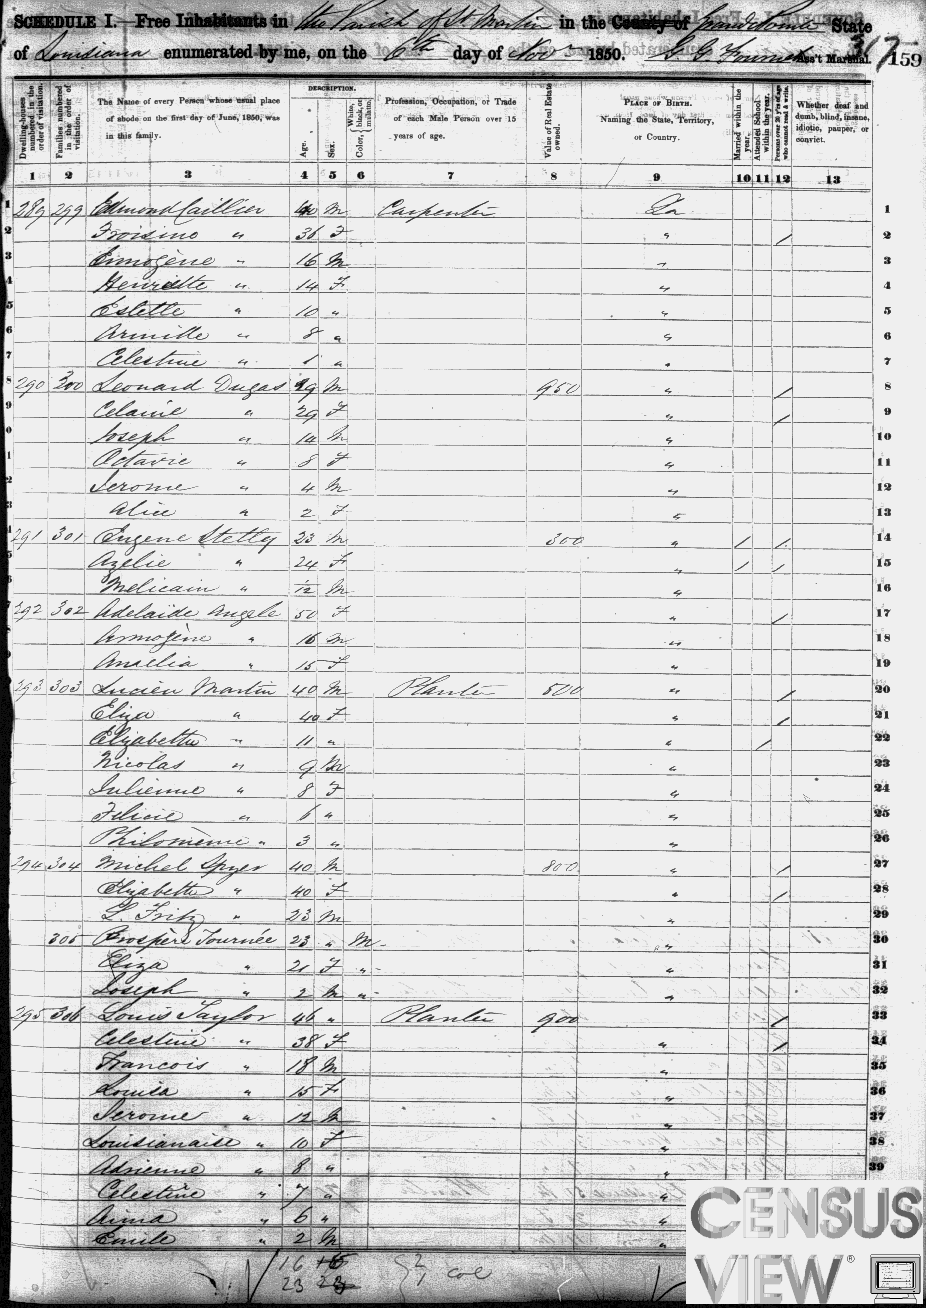 SCHEDULE I.—Free Inhabitants in the Parish of St Martin in the County of State
of Louisiana enumerated by me, on the 6th day of Nov 1850. Ass't Marshal.
317 159
Dwelling-houses numbered in the order of visitation.
Families numbered in the order of visitation.
The Name of every Person whose usual place of abode on the first day of June, 1850, was in this family.
DESCRIPTION.
Age.
Sex.
White, black, or mulatto. Color,
Profession, Occupation, or Trade of each Male Person over 15 years of age.
Value of Real Estate owned.
PLACE OF BIRTH. Naming the State, Territory, or Country.
Married within the year.
Attended School within the year.
Persons over 20 y'rs of age who cannot read & write.
Whether deaf and dumb, blind, insane, idiotic, pauper, or convict.
1 2 3 4 5 6 7 8 9 10 11 12 13
1 289 299 Edmond Caillier 40 M Carpenter La 1
2 Froisine " 36 F " / 2
3 Ermogène " 16 M " 3
4 Henriette " 14 F " 4
5 Estelle " 10 " " 5
6 Armille " 8 " " 6
7 Celestine " 1 " " 7
8 290 300 Leonard Dugas 29 M 950 " / 8
9 Celanie " 29 F " / 9
0 Joseph " 10 M " 10
1 Octavie " 8 F " 11
2 Jerome " 4 M " 12
3 Alice " 2 F " 13
4 291 301 Eugene Stelly 23 M 300 " / / 14
5 Azelie " 24 F " / / 15
6 Melicain " 1/12 M " 16
7 292 302 Adelaide Angele 50 F " / 17
Armogène " 16 M " 18
9 Amelia " 15 F " 19
293 303 Lucien Martin 40 M Planter 500 " / 20
Eliza " 40 F " / 21
Elizabeth " 11 " " / 22
Nicolas " 9 M " 23
Julienne " 8 F " 24
Felicie " 6 " " 25
Philomène " 3 " " 26
294 304 Michel Spyer 40 M 800 " / 27
Elizabeth " 40 F " / 28
L. Fritz " 23 M " 29
305 Prospère Tournée 23 " M " 30
Eliza " 21 F " " 31
Joseph " 2 M " " 32
295 306 Louis Taylor 46 " Planter 900 / 33
Celestine " 38 F " / 34
Francois " 18 M " 35
Louisa " 15 F " 36
Jerome " 12 M " 37
Louisianaise " 10 F " 38
Adrienne " 8 " " 39
Celestine " 7 " "
Anna " 6 " "
Emile " 2 M "
16 16 2
23 23 1 col
CENSUS
VIEW®